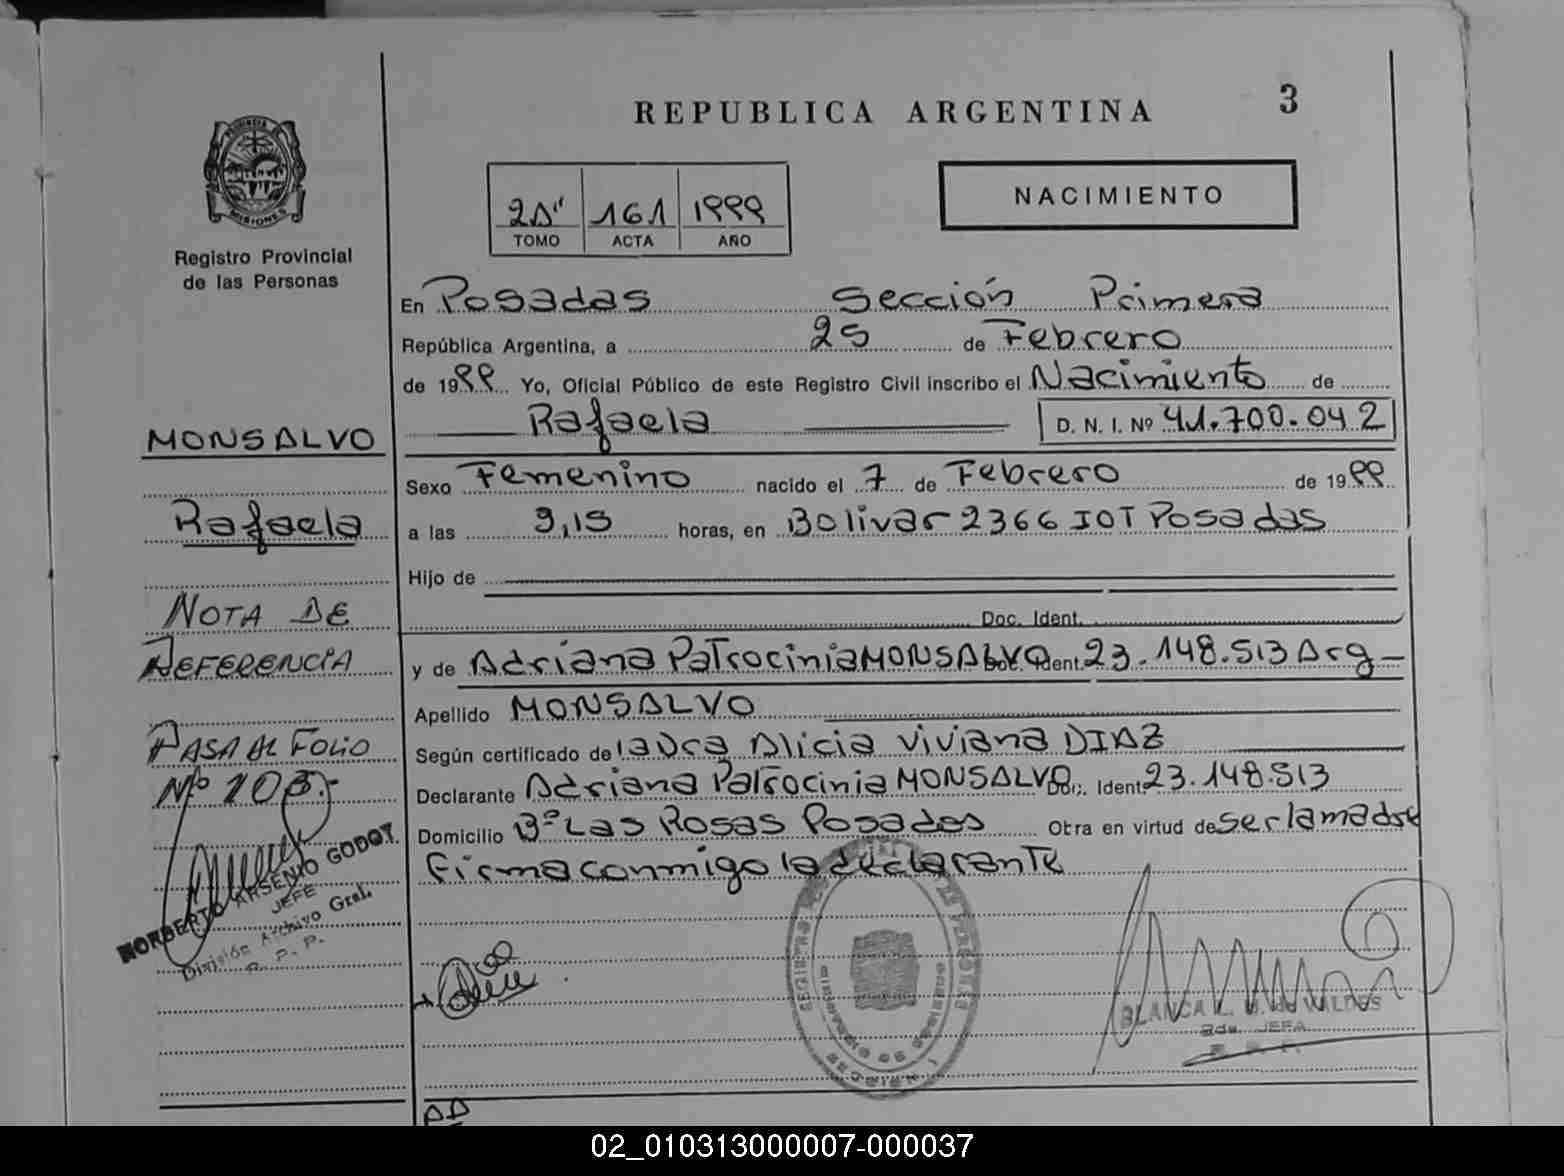 REPUBLICA ARGENTINA
3
PROVINCIA DE
MISIONES
Registro Provincial
de las Personas
2A" 161 1999
TOMO ACTA AÑO
NACIMIENTO
En Posadas Sección Primera
República Argentina, a 25 de Febrero
de 1999 Yo, Oficial Público de este Registro Civil inscribo el Nacimiento de
Rafaela D. N. I. Nº 41.700.042
Sexo Femenino nacido el 7 de Febrero de 1999
a las 9,15 horas, en Bolivar 2366 IOT Posadas
Hijo de
Doc. Ident.
y de Adriana Patrocinia MONSALVO Doc. Ident. 23.148.513 Arg
Apellido MONSALVO
Según certificado de la Dra Alicia Viviana DIAZ
Declarante Adriana Patrocinia MONSALVO Doc. Ident 23.148.513
Domicilio Bº Las Rosas Posadas Otra en virtud de ser la madre
Firma conmigo la declarante
MONSALVO
Rafaela
NOTA DE
REFERENCIA
PASA AL FOLIO
Nº 103.-
NORBERTO ARSENIO GODOY
JEFE
División Archivo Gral.
R. P. P.
BLANCA L. de VALDES
2da. JEFA
R. P. P.
AA
02_010313000007-000037